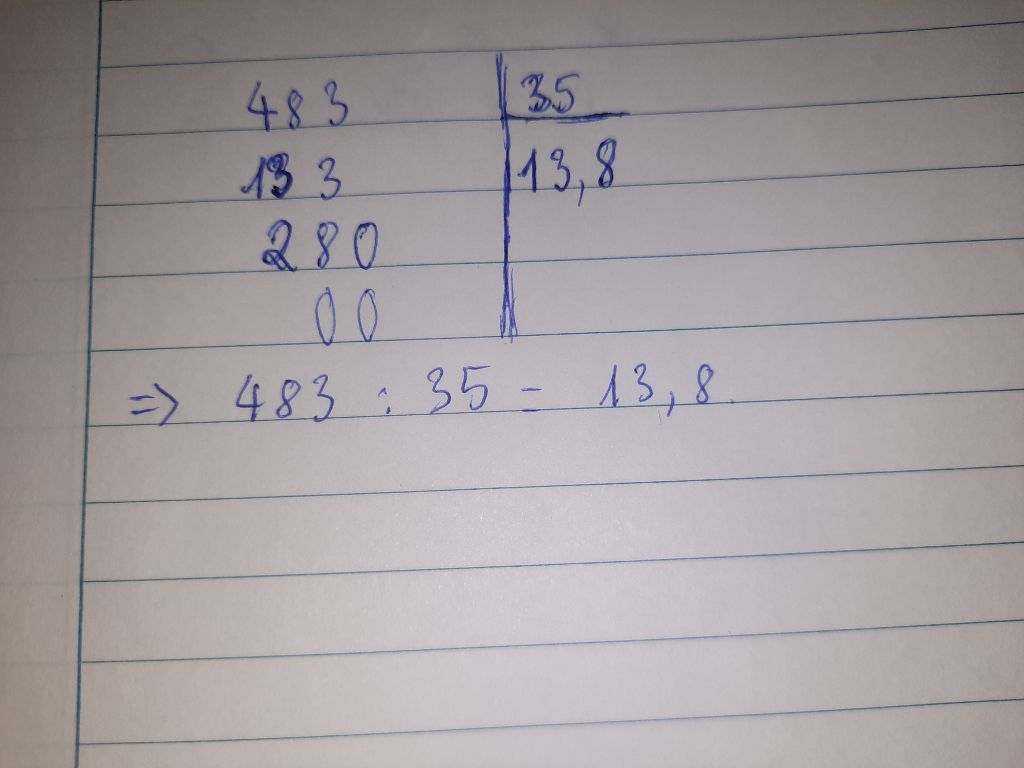 483 35
133 13,8
280
00
=> 483 : 35 = 13,8.